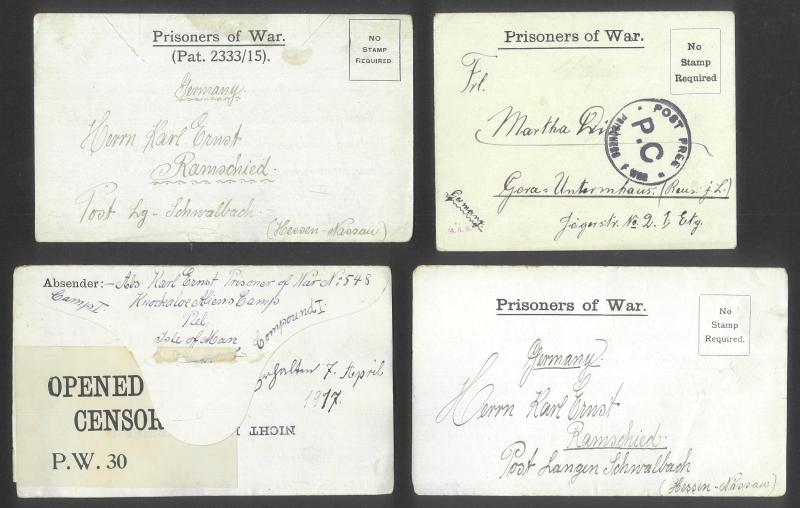 Prisoners of War.
(Pat. 2333/15).
No
Stamp
Required
Germany
Herrn Karl Ernst
Ramschied.
Post Lg-Schwalbach
(Hessen-Nassau)
Prisoners of War.
No
Stamp
Required
Frl.
Martha
POST FREE
P.C
PRISONERS OF WAR
Gera-Untermhaus. (Reuss j. L.)
Jägerstr. No 2. I, Etg.
Germany
Absender:- Abs Karl Ernst Prisoner of War No: 548
Camp I.
Knockaloe Aliens Camp
Peel,
Isle of Man
Compound I.
Erhalten 7. April
1917.
OPENED
CENSOR
P.W. 30
NICHT
Prisoners of War.
No
Stamp
Required.
Germany.
Herrn Karl Ernst
Ramschied.
Post Langen Schwalbach
(Hessen-Nassau)